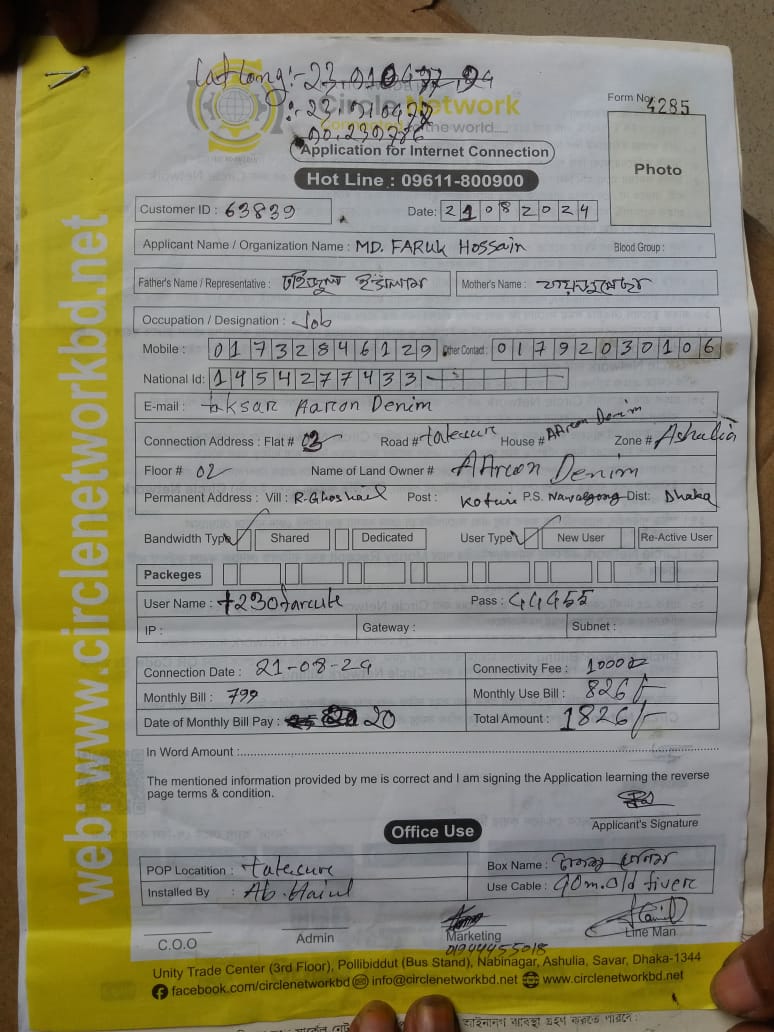 Lat Long:-
:-23.010478
90.230786
Circle Network
Connected to the world.....
Application for Internet Connection
Form No: 4285
Photo
Hot Line : 09611-800900
Customer ID : 63839
Date: 21082024
Applicant Name / Organization Name : MD. FARUK HOSSain
Blood Group :
Father's Name / Representative : ইসলাম
Mother's Name :
Occupation / Designation : Job
Mobile : 01732846129 Other Contact : 01792030106
National Id: 1454277433
E-mail : Aarcon Denim
Connection Address : Flat # 02 Road # tatesure House # AArcon Denim Zone # Ashulia
Floor # 02 Name of Land Owner # AArcon Denim
Permanent Address : Vill : R.Ghoshail Post : P.S. Nawabgong Dist: Dhaka
Bandwidth Type Shared Dedicated User Type New User Re-Active User
Packeges
User Name : Pass : 44455
IP : Gateway : Subnet :
Connection Date : 21-08-24 Connectivity Fee : 1000
Monthly Bill : 799 Monthly Use Bill : 826/-
Date of Monthly Bill Pay : 20 Total Amount : 1826/-
In Word Amount :
The mentioned information provided by me is correct and I am signing the Application learning the reverse
page terms & condition.
Applicant's Signature
Office Use
POP Locatition : tatesure Box Name :
Installed By : Ab. Use Cable : 90m. Old
C.O.O Admin Marketing Line Man
01944455018
Unity Trade Center (3rd Floor), Pollibiddut (Bus Stand), Nabinagar, Ashulia, Savar, Dhaka-1344
facebook.com/circlenetworkbd info@circlenetworkbd.net www.circlenetworkbd.net
web: www.circlenetworkbd.net
ব্যবস্থা গ্রহণ করতে পারবে।